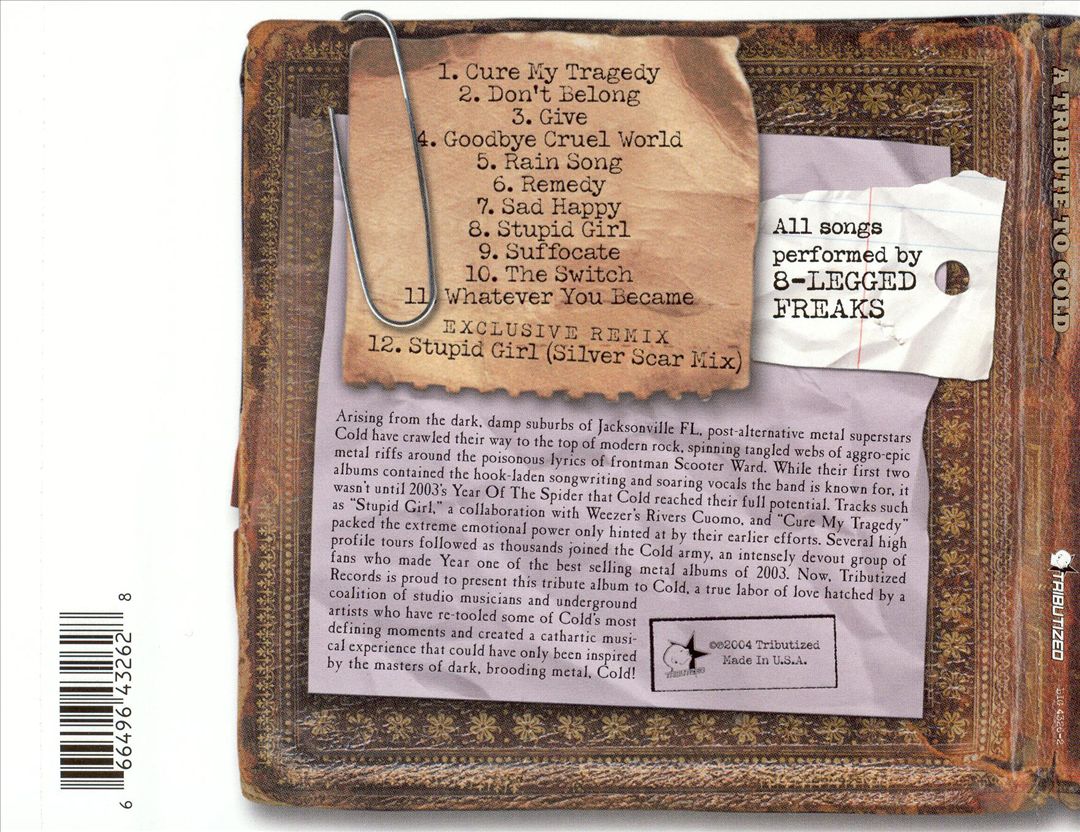 1. Cure My Tragedy
2. Don't Belong
3. Give
4. Goodbye Cruel World
5. Rain Song
6. Remedy
7. Sad Happy
8. Stupid Girl
9. Suffocate
10. The Switch
11. Whatever You Became
EXCLUSIVE REMIX
12. Stupid Girl (Silver Scar Mix)
All songs
performed by
8-LEGGED
FREAKS
Arising from the dark, damp suburbs of Jacksonville FL, post-alternative metal superstars
Cold have crawled their way to the top of modern rock, spinning tangled webs of aggro-epic
metal riffs around the poisonous lyrics of frontman Scooter Ward. While their first two
albums contained the hook-laden songwriting and soaring vocals the band is known for, it
wasn't until 2003's Year Of The Spider that Cold reached their full potential. Tracks such
as "Stupid Girl," a collaboration with Weezer's Rivers Cuomo, and "Cure My Tragedy"
packed the extreme emotional power only hinted at by their earlier efforts. Several high
profile tours followed as thousands joined the Cold army, an intensely devout group of
fans who made Year one of the best selling metal albums of 2003. Now, Tributized
Records is proud to present this tribute album to Cold, a true labor of love hatched by a
coalition of studio musicians and underground
artists who have re-tooled some of Cold's most
defining moments and created a cathartic musi-
cal experience that could have only been inspired
by the masters of dark, brooding metal, Cold!
TRIBUTIZED
℗©2004 Tributized
Made In U.S.A.
A TRIBUTE TO COLD
TRIBUTIZED
6 66496 43262 8